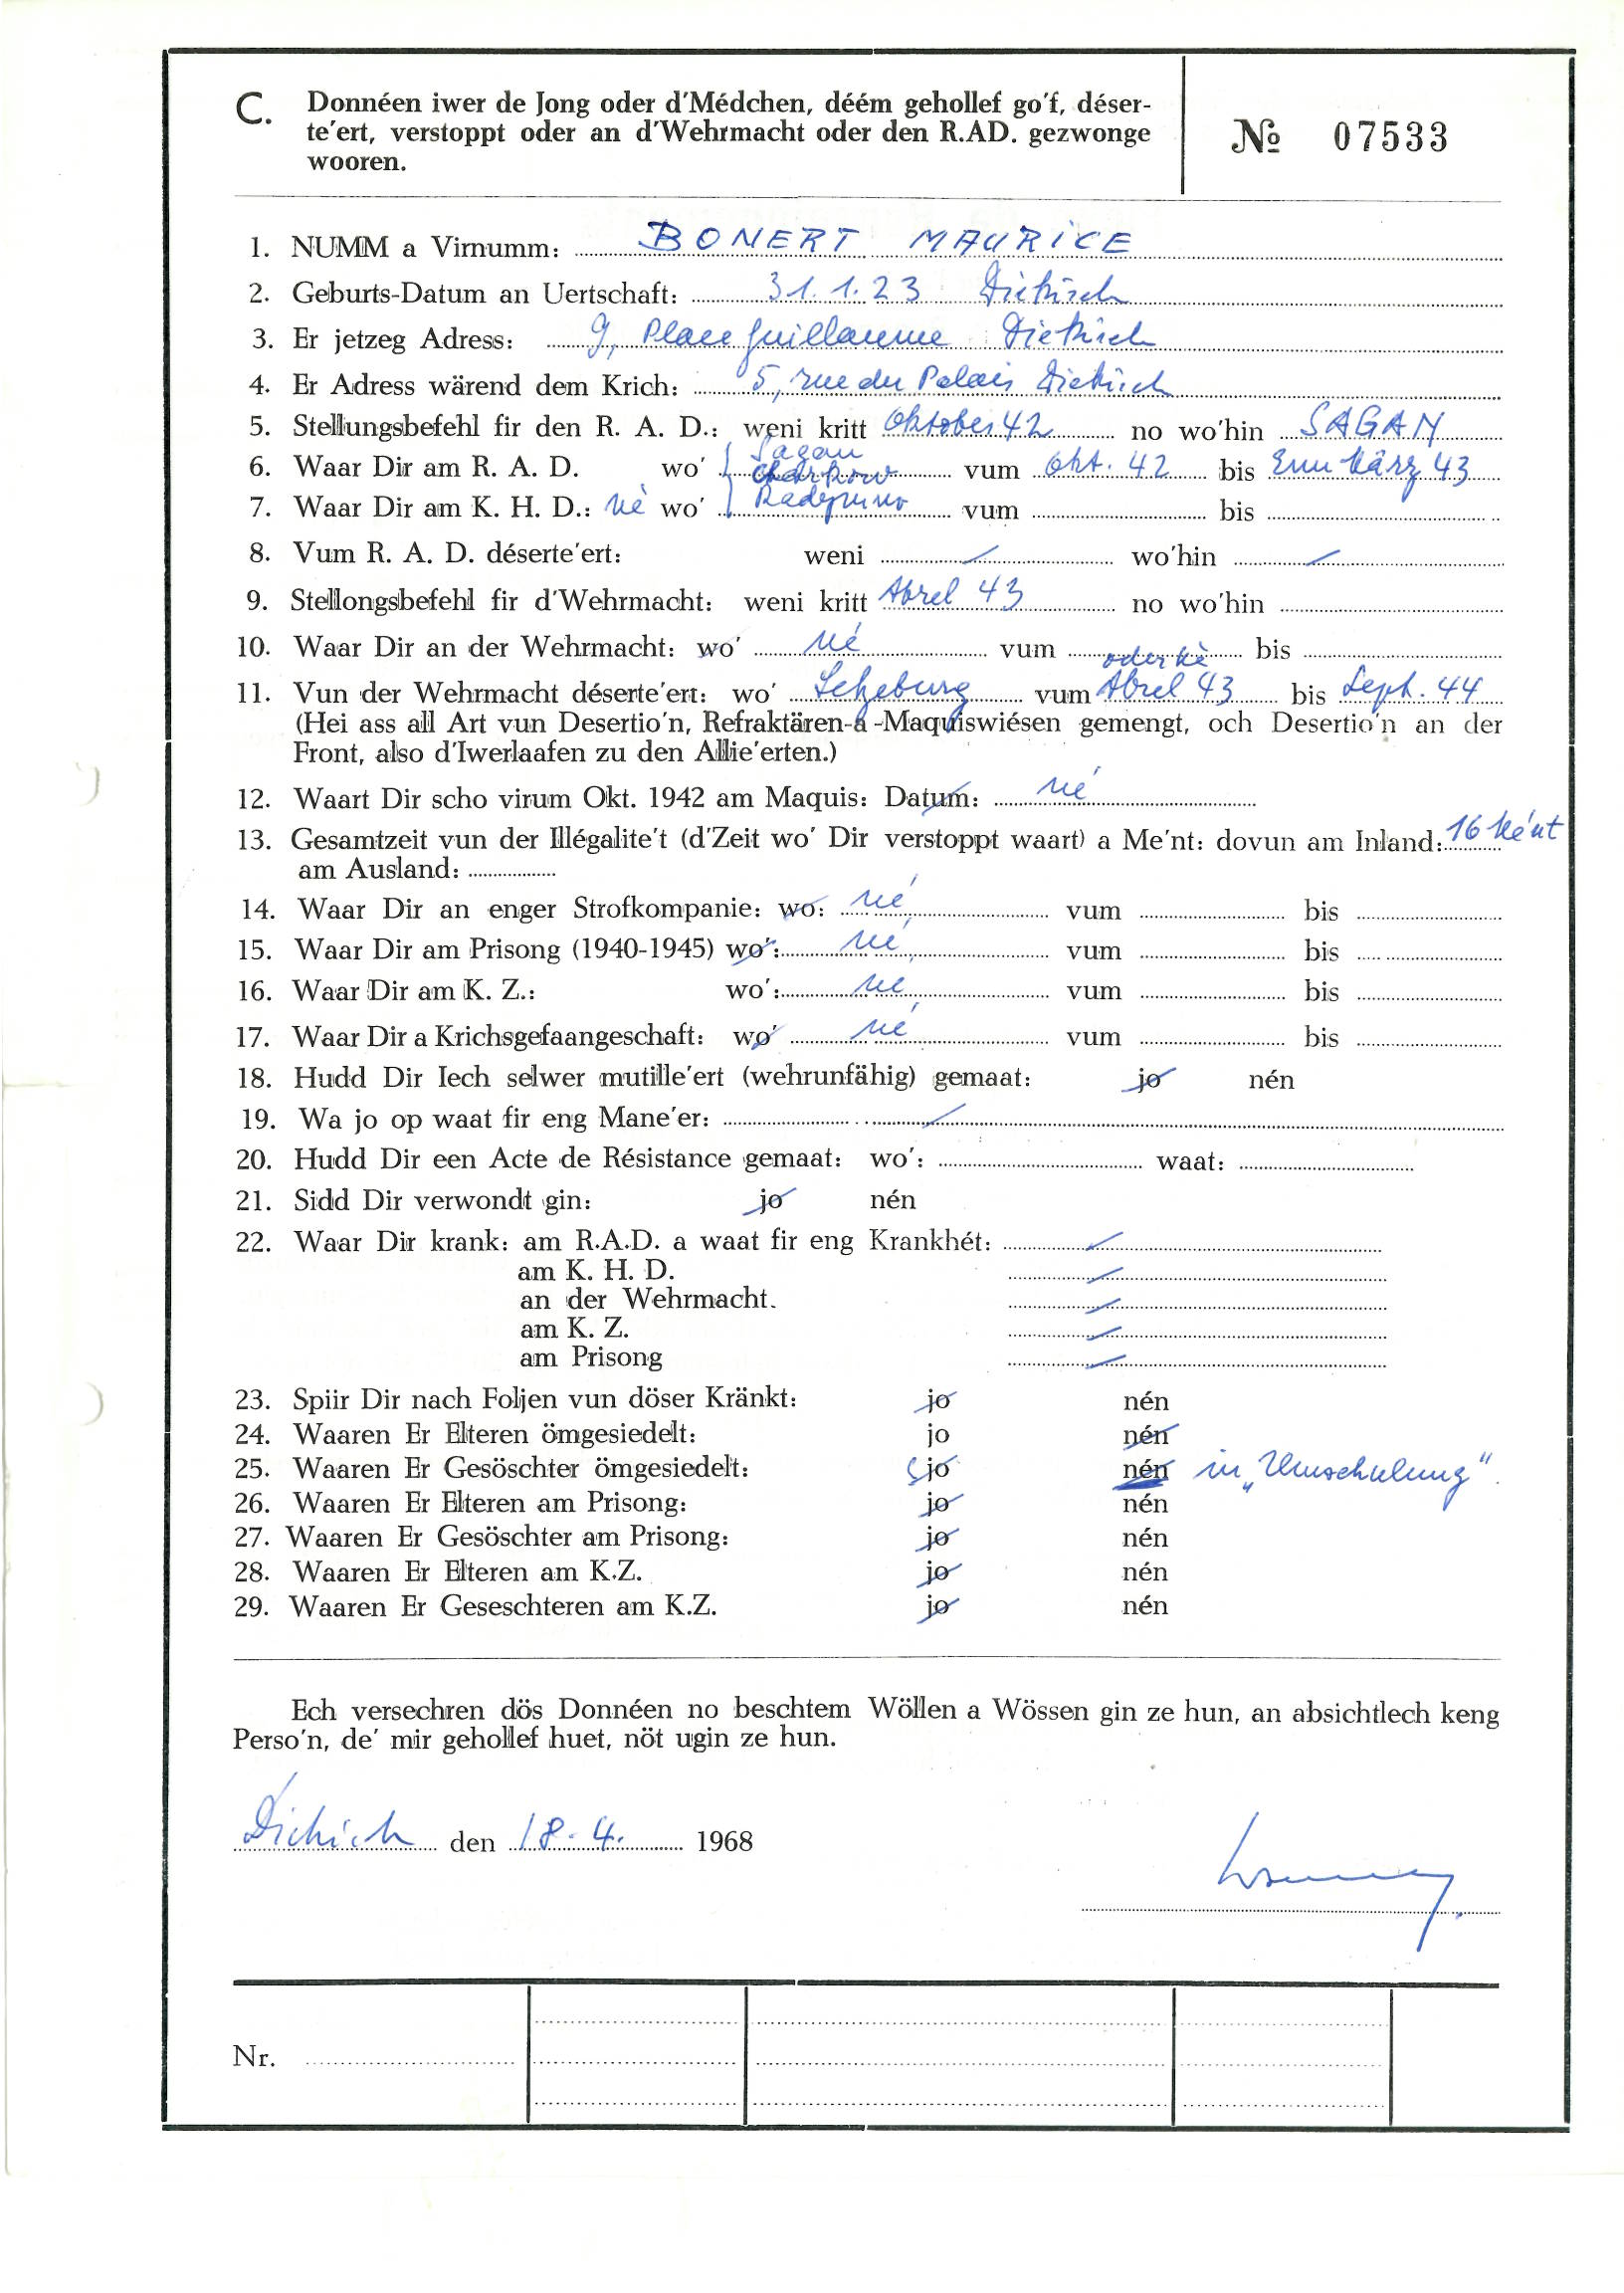 C. Donnéen iwer de Jong oder d'Médchen, déém gehollef go'f, déser-
te'ert, verstoppt oder an d'Wehrmacht oder den R.AD. gezwonge
wooren.
№ 07533
1. NUMM a Virnumm: BONERT MAURICE
2. Geburts-Datum an Uertschaft: 31.1.23 Diekirch
3. Er jetzeg Adress: 9, Place Guillaume Diekirch
4. Er Adress wärend dem Krich: 5, rue du Palais Diekirch
5. Stellungsbefehl fir den R. A. D.: weni kritt Oktober 42 no wo'hin SAGAN
6. Waar Dir am R. A. D. wo' Sagan Charkow vum Okt. 42 bis Enn März 43
7. Waar Dir am K. H. D.: né wo' vum bis
8. Vum R. A. D. déserte'ert: weni / wo'hin /
9. Stellongsbefehl fir d'Wehrmacht: weni kritt Abrel 43 no wo'hin
10. Waar Dir an der Wehrmacht: wo' né vum bis
11. Vun der Wehrmacht déserte'ert: wo' Letzeburg vum Abrel 43 bis Sept. 44
(Hei ass all Art vun Desertio'n, Refraktären-a-Maquiswiésen gemengt, och Desertio'n an der
Front, also d'Iwerlaafen zu den Allie'erten.)
12. Waart Dir scho virum Okt. 1942 am Maquis: Datum: né
13. Gesamtzeit vun der Illégalite't (d'Zeit wo' Dir verstoppt waart) a Me'nt: dovun am Inland: 16 Mé'nt
am Ausland:
14. Waar Dir an enger Strofkompanie: wo: né vum bis
15. Waar Dir am Prisong (1940-1945) wo': né vum bis
16. Waar Dir am K. Z.: wo': né vum bis
17. Waar Dir a Krichsgefaangeschaft: wo' né vum bis
18. Hudd Dir Iech selwer mutille'ert (wehrunfähig) gemaat: jo nén
19. Wa jo op waat fir eng Mane'er: /
20. Hudd Dir een Acte de Résistance gemaat: wo': waat:
21. Sidd Dir verwondt gin: jo nén
22. Waar Dir krank: am R.A.D. a waat fir eng Krankhét: /
am K. H. D. /
an der Wehrmacht. /
am K. Z. /
am Prisong /
23. Spiir Dir nach Foljen vun döser Kränkt: jo nén
24. Waaren Er Elteren ömgesiedelt: jo nén
25. Waaren Er Gesöschter ömgesiedelt: jo nén in „Umschulung".
26. Waaren Er Elteren am Prisong: jo nén
27. Waaren Er Gesöschter am Prisong: jo nén
28. Waaren Er Elteren am K.Z. jo nén
29. Waaren Er Geseschteren am K.Z. jo nén
Ech versechren dös Donnéen no beschtem Wöllen a Wössen gin ze hun, an absichtlech keng
Perso'n, de' mir gehollef huet, nöt ugin ze hun.
Diekirch den 18.4. 1968
Nr.